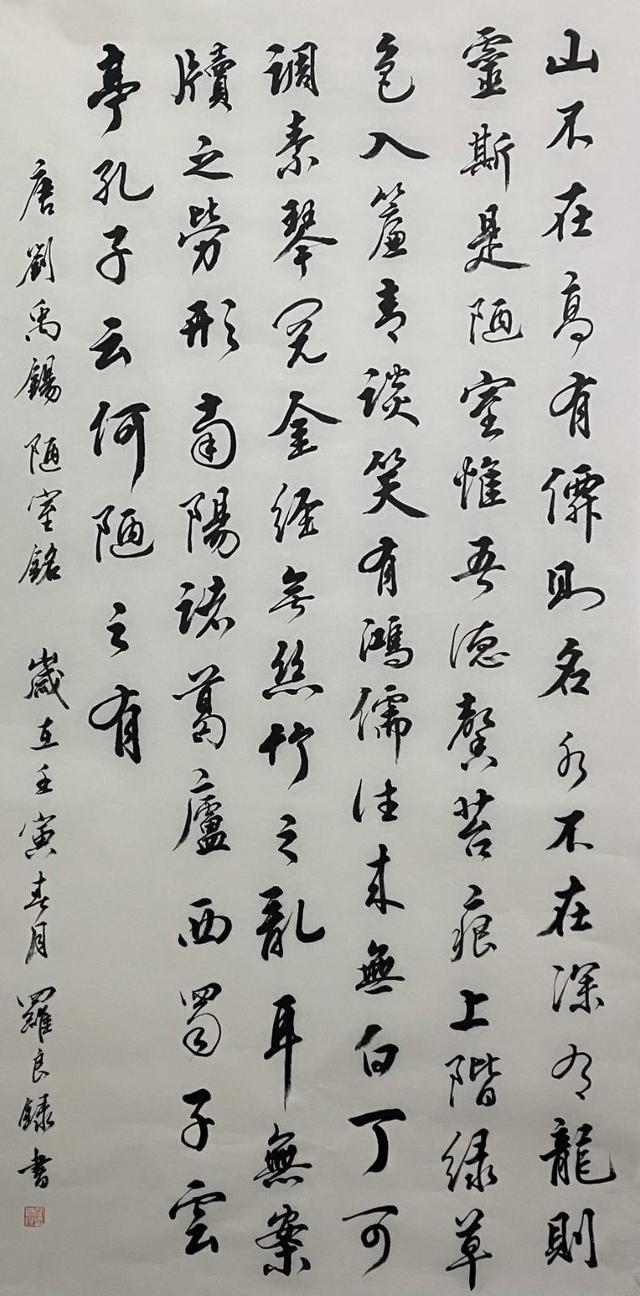 山不在高有僊則名水不在深有龍則
靈斯是陋室惟吾德馨苔痕上階緑草
色入簾青談笑有鴻儒往来無白丁可
調素琴閱金經無絲竹之亂耳無案
牘之勞形南陽諸葛廬西蜀子雲
亭孔子云何陋之有
唐劉禹錫陋室銘 歲在壬寅春月 羅良録書